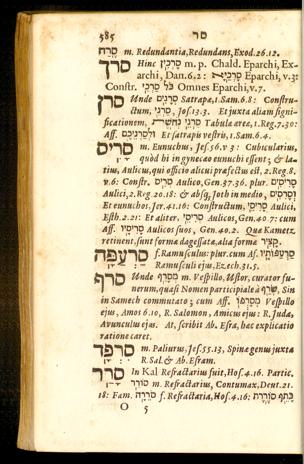 585 סר
סֶרַח m. Redundantia, Redundans, Exod. 26. 12.
סרך Hinc סָרְכִין m. p. Chald. Eparchi, Ex-
archi, Dan. 6. 2: סָרְכַיָּא Eparchi, v. 3:
Constr. כֹּל סָרְכֵי Omnes Eparchi, v. 7.
סרן Unde סְרָנִים Satrapæ, 1. Sam. 6. 8: Constru-
ctum, סַרְנֵי, Jos. 13. 3. Et juxta aliam signi-
ficationem, סַרְנֵי נְחֹשֶׁת Tabulæ æreæ, 1. Reg. 7. 30:
Aff. וּלְסַרְנֵיכֶם Et satrapis vestris, 1. Sam. 6. 4.
סָרִיס m. Eunuchus, Jes. 56. v 3: Cubicularius,
quòd hi in gynæceo eunuchi essent; & la-
tius, Aulicus, qui officio alicui præfectus est, 2. Reg. 8.
v. 6: Constr. סְרִיס Aulico, Gen. 37. 36. plur. סָרִיסִים
Aulici, 2. Reg. 20. 18: & absq; Jod in medio, וְסָרִסִים
Et eunuchos. Jer. 41. 16: Constructum, סָרִיסֵי Aulici,
Esth. 2. 21: Et aliter. סְרִיסֵי Aulicos, Gen. 40. 7: cum
Aff. סָרִיסָיו Aulicos suos, Gen. 40. 2. Quæ Kametz
retinent, sunt formæ dagessatæ, alia formæ קָצִיר
סַרְעַפָּה f. Ramusculus: plur. cum Af. סַרְעַפֹּתָיו
Ramusculi ejus, Ez. ech. 31. 5.
סרף Unde מְסָרֵף m. Vespillo, Ustor, curator fu-
nerum, quasi Nomen participiale à שָׂרַף, Sin
in Samech commutato; cum Aff. מְסָרְפוֹ Vespillo
ejus, Amos 6. 10, R. Salomon, Amicus ejus: R. Juda,
Avunculus ejus. At, scribit Ab. Esra, hæc explicatio
ratione caret.
סִרְפַּד m. Paliurus, Jes. 55. 13, Spinæ genus juxta
R. Sal. & Ab. Esram.
סרר In Kal Refractarius fuit, Hos. 4. 16. Partic.
סוֹרֵר m. Refractarius, Contumax, Deut. 21.
18: Fæm. סֹרֵרָה f. Refractaria, Hos. 4. 16: כָּתֵף סוֹרֶרֶת
O 5